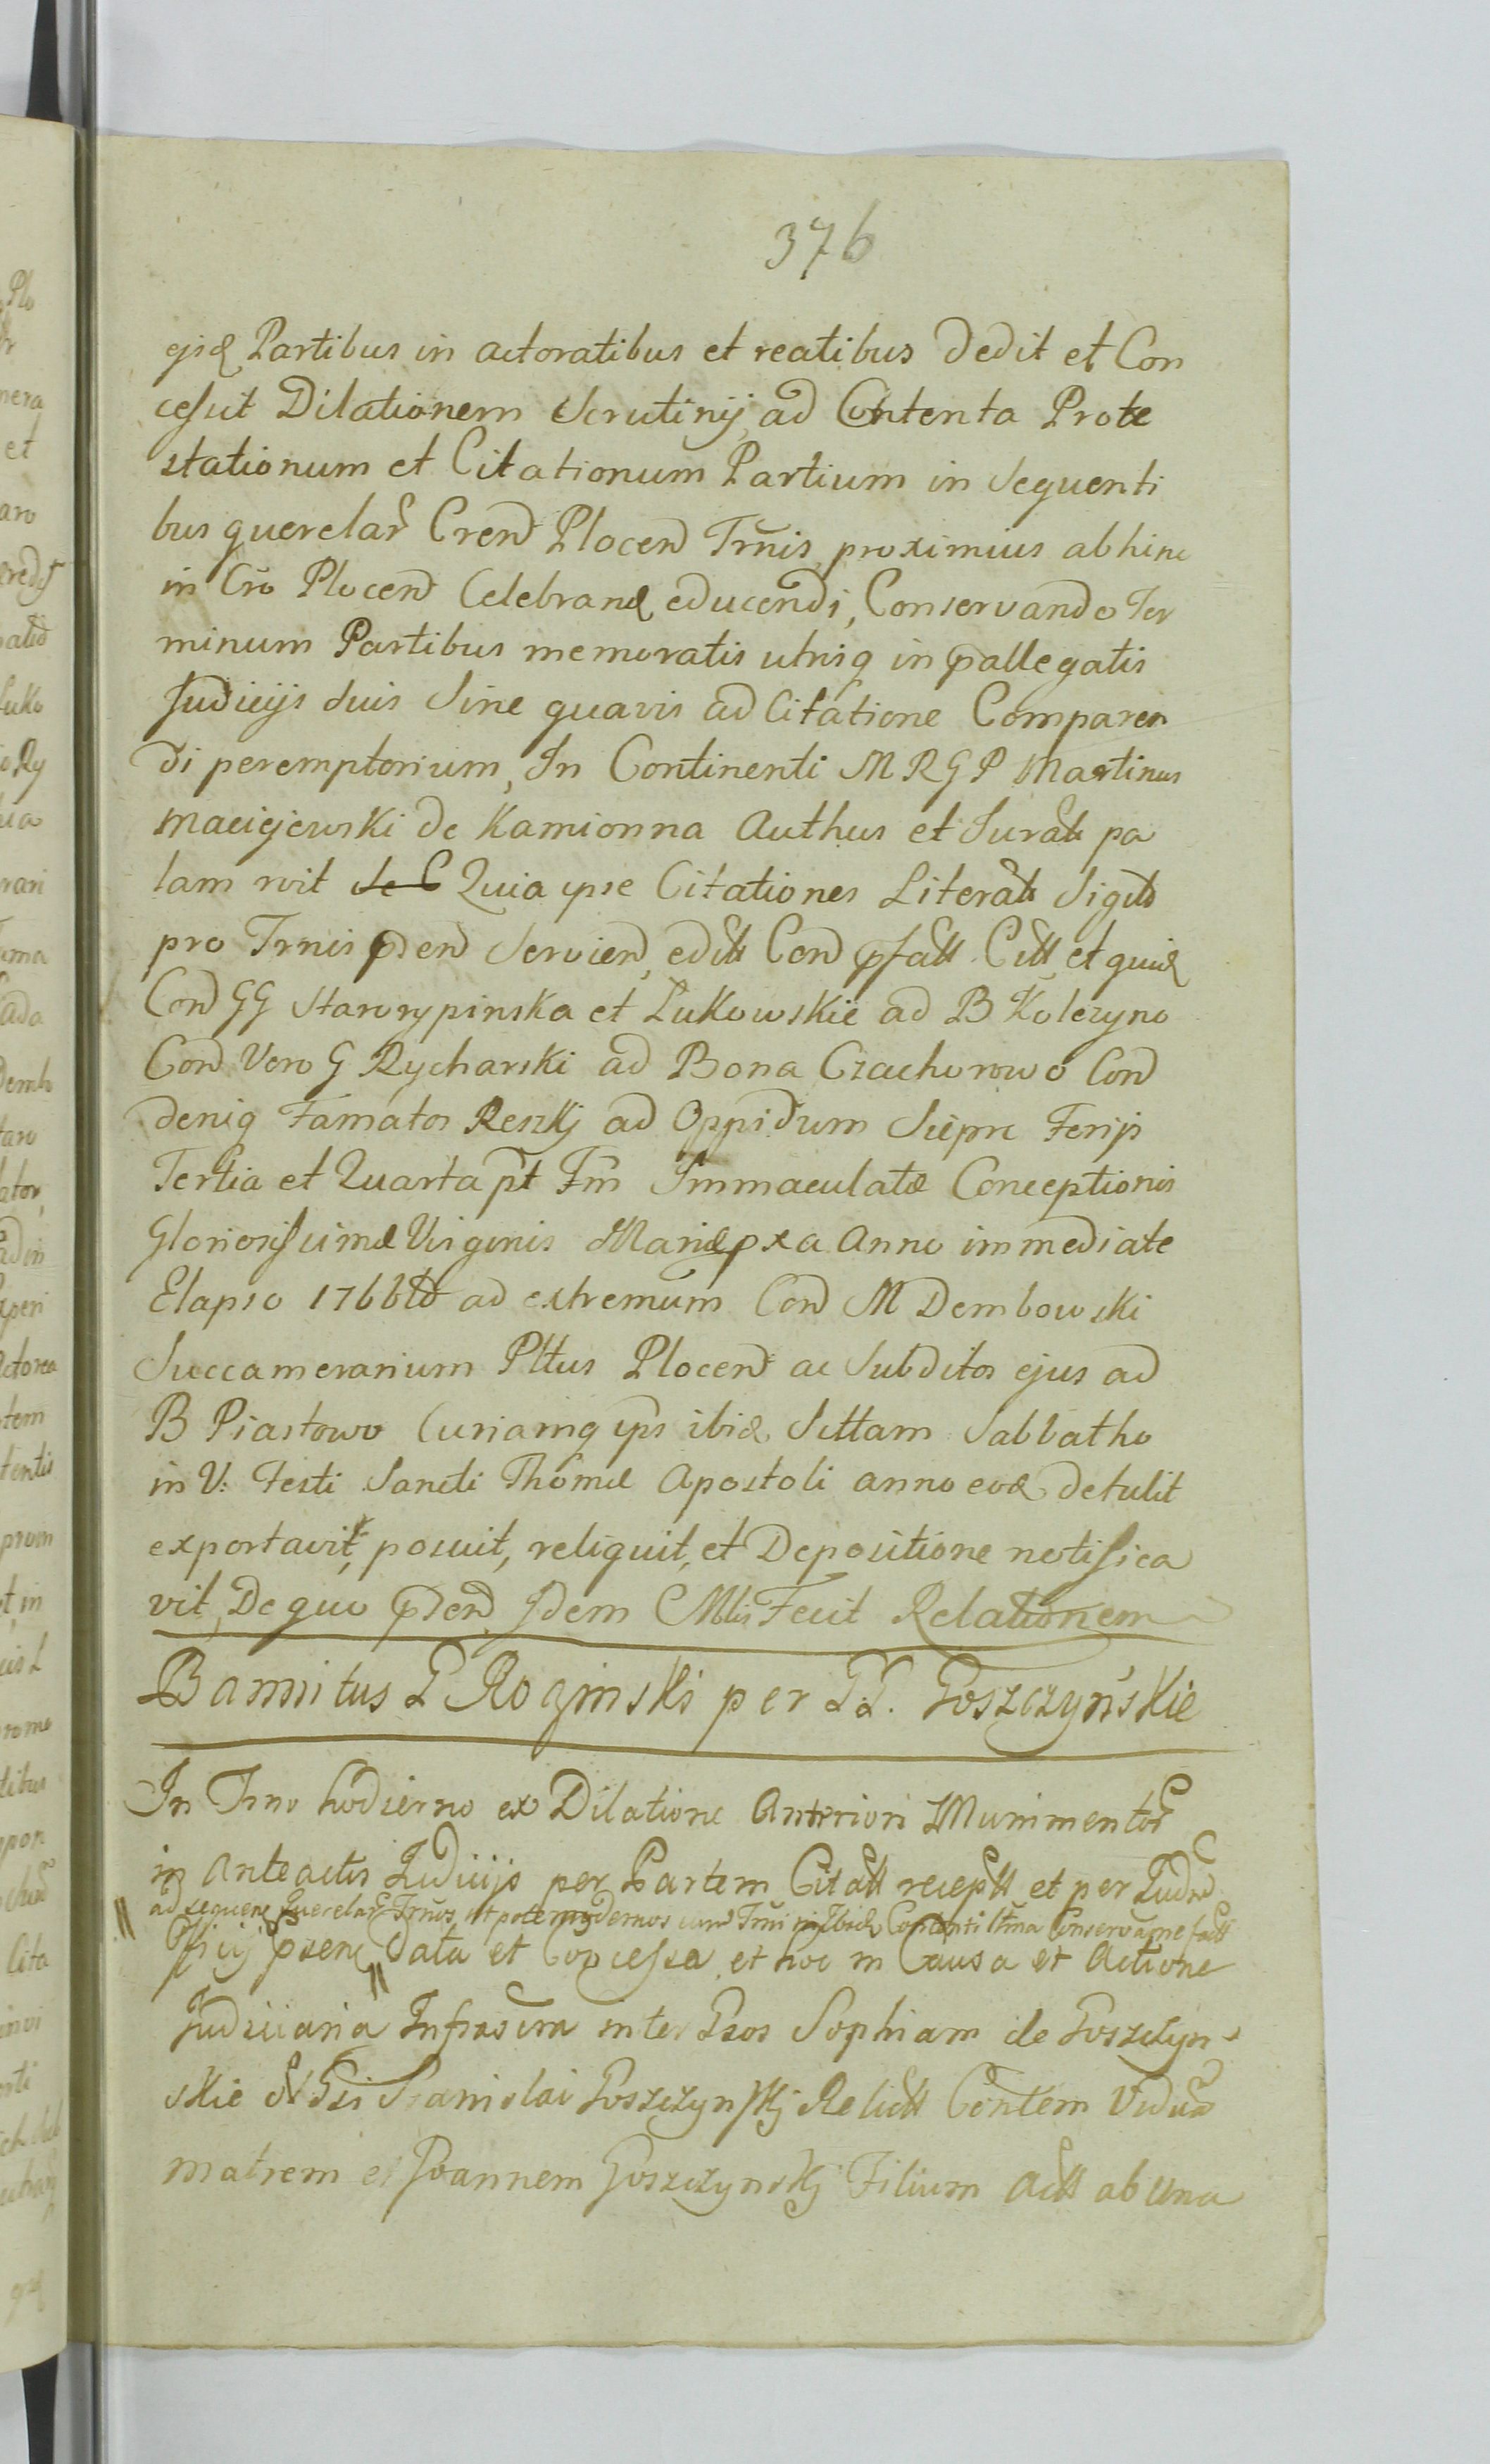 376
ejsd Partibus in actoratibus et reatibus Dedit et Con
cessit Dilationem Scrutinij, ad Contenta Prote
stationum et Citationum Partium in Sequenti
bus querelar Cren Plocen Trnis proximius abhinc
in Cro Plocen Celebrand educendi, Conservando Ter
minum Partibus memoratis utrisq in pallegatis
Judicijs suis Sine quavis ad Citatione Comparen
di peremptorium, In Continenti M R G P Martinus
Maciejewski de Kamionna Authus et Juratt pa
lam rvit Quia ipse Citationes Literatt Sigill
pro Trnis psen Servien, editt Con pfatt Citt et quid
Con GG Starorypinska et Lukowskie ad B Kolczyno
Con Vero G Rycharski ad Bona Czachorowo Con
deniq Famatos Reszkj ad Oppidum Sieprc Ferijs
Tertia et Quarta pt Fm Immaculatæ Conceptionis
Gloriosissimæ Virginis Mariæ pxa Anno immediate
Elapso 1766to ad extremum Con M Dembowski
Succamerarium Pltus Plocen ac Subditos ejus ad
B Piastowo Curiamq ips ibid Sittam Sabbatho
in V: Festi Sancti Thomæ Apostoli anno eod detulit
exportavit, posuit, reliquit, et Depositione notifica
vit, De quo psen Idem Mtlis Fecit Relationem
Bannitus G Rozinski per GG. Goszczyńskie
In Trno hodierno ex Dilatione Anteriori Munimentor
in anteactis Judicijs per Partem Citatt receptt et per Judm
ad sequen Querelar Trnos, ut pote modernos cum Trni in Ibid Contenti Conservane fact
Officij psens Data et Concessa et hoc in Causa et Actione
Judiciaria Infrascra inter Gsos Sophiam de Goszczyn
skie Gsi Stanislai Goszczynskj Relictt Contem Viduam
matrem et Joannem Goszczynskj Filium Actt ab una